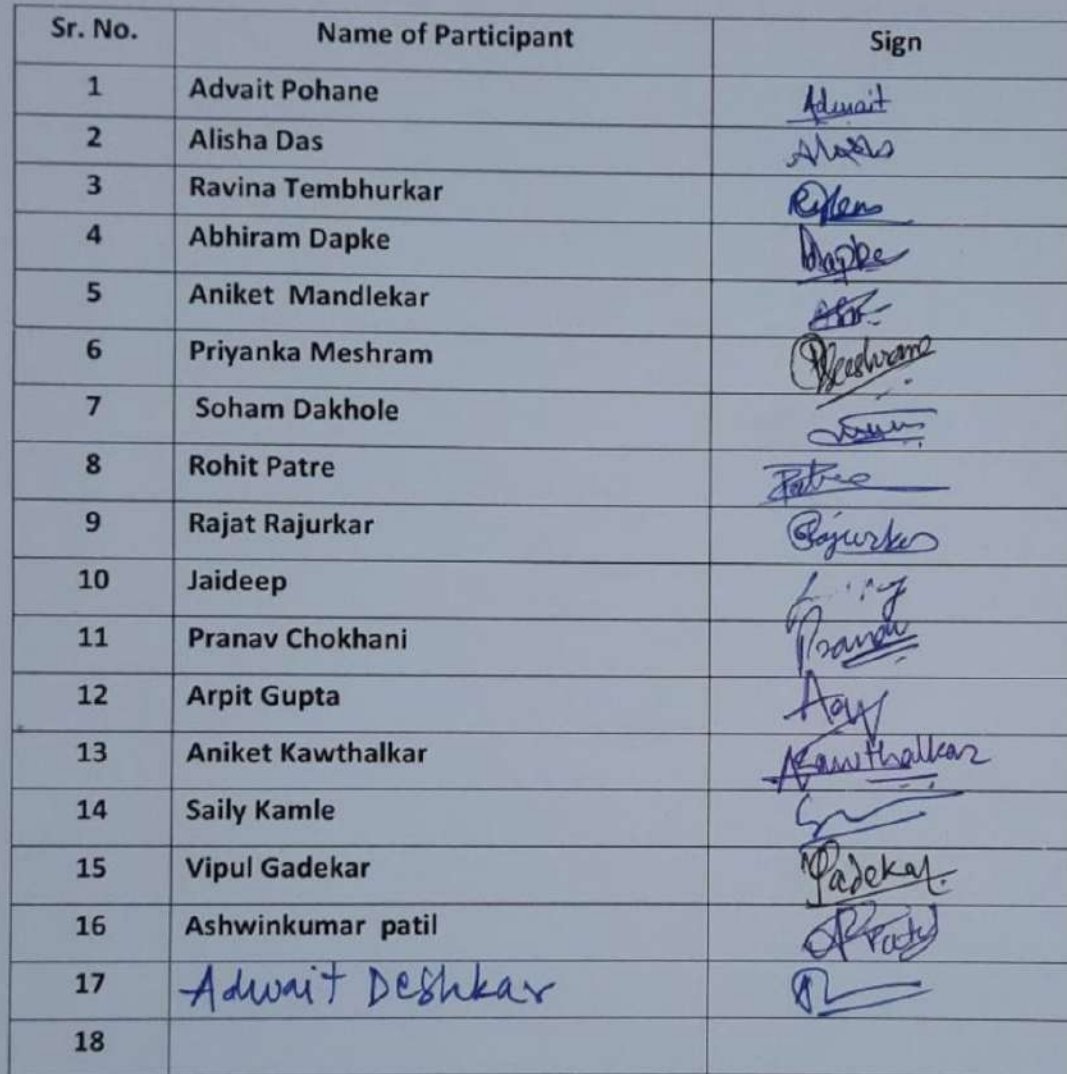 Sr. No. Name of Participant Sign
1 Advait Pohane Adwait
2 Alisha Das
3 Ravina Tembhurkar
4 Abhiram Dapke Dapke
5 Aniket Mandlekar
6 Priyanka Meshram PMeshram
7 Soham Dakhole
8 Rohit Patre Patre
9 Rajat Rajurkar Rajurkar
10 Jaideep
11 Pranav Chokhani Pranav
12 Arpit Gupta
13 Aniket Kawthalkar AKawthalkar
14 Saily Kamle
15 Vipul Gadekar Gadekar
16 Ashwinkumar patil APatil
17 Adwait Deshkar
18